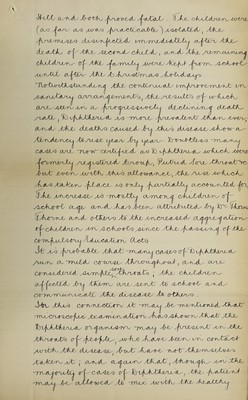 Hill and both proved fatal. The children were
(as far as was practicable) isolated, the
premises disinfected immediately after the
death of the second child, and the remaining
children of the family were kept from school
until after the Christmas holidays.
Notwithstanding the continual improvement in
sanitary arrangements, the results of which
are seen in a progressively declining death
rate, Diphtheria is more prevalent than ever,
and the deaths caused by this disease show a
tendency to rise year by year. Doubtless many
cases are now certified as Diphtheria which were
formerly registered Croup, Putrid Sore throat &c
but even with this allowance, the rise which
has taken place is only partially accounted for.
The increase is mostly among children of
school age and has been attributed by Dr Thorne
Thorne and others to the increased aggregation
of children in schools since the passing of the
Compulsory Education Acts.
It is probable that many cases of Diphtheria
run a mild course throughout, and are
considered simple sore throats, the children
affected by them are sent to school and
communicate the disease to others.
In this connection it may be mentioned that
microscopic examination has shown that the
Diphtheria organism may be present in the
throats of people, who have been in contact
with the disease, but have not themselves
taken it; and again that, though in the
majority of cases of Diphtheria, the patient
may be allowed to mix with the healthy